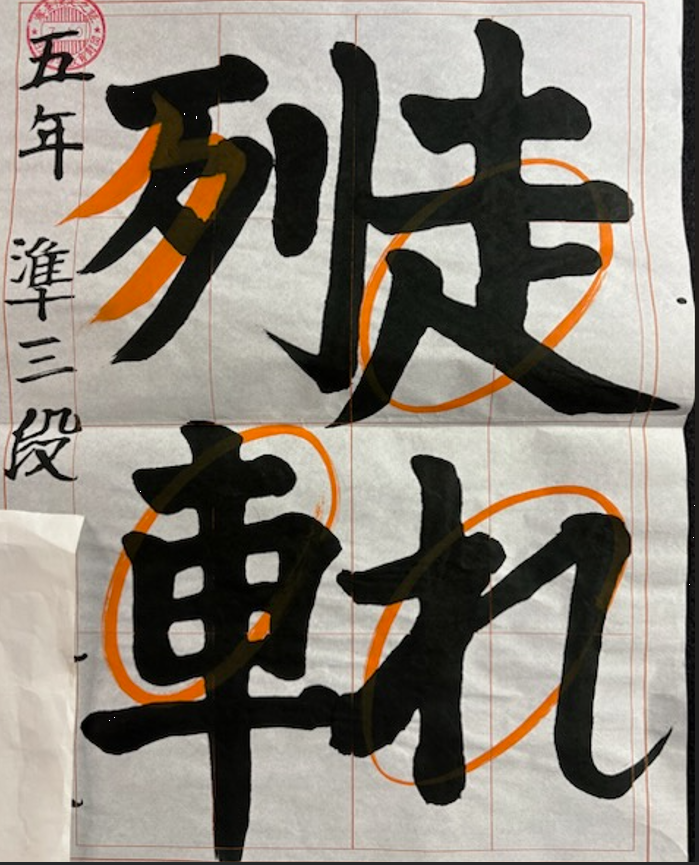 走れ
列車
五年 準三段